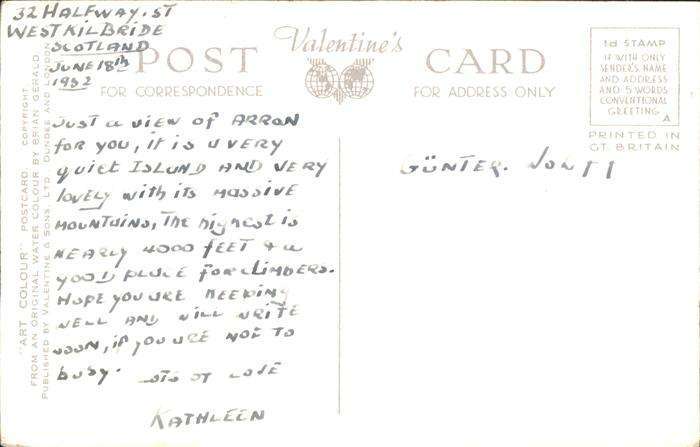 32 HALFWAY. ST
WEST KILBRIDE
SCOTLAND
JUNE 18th
1932
POST
FOR CORRESPONDENCE
Valentine's
CARD
FOR ADDRESS ONLY
1d STAMP
IF WITH ONLY
SENDER'S NAME
AND ADDRESS
AND 5 WORDS
CONVENTIONAL
GREETING
A
PRINTED IN
GT. BRITAIN
"ART COLOUR" POSTCARD. COPYRIGHT
FROM AN ORIGINAL WATER COLOUR BY BRIAN GERALD
PUBLISHED BY VALENTINE & SONS, LTD. DUNDEE AND LONDON
JUST A VIEW OF ARRON
for you, it is a very
quiet ISLAND AND VERY
lovely with its MASSIVE
MOUNTAINS, The highest is
NEARLY 4000 FEET & a
good place for climbers.
Hope you are keeping
well AND will write
soon, if you are NOT TO
busy. Lots of love
KATHLEEN
GÜNTER.